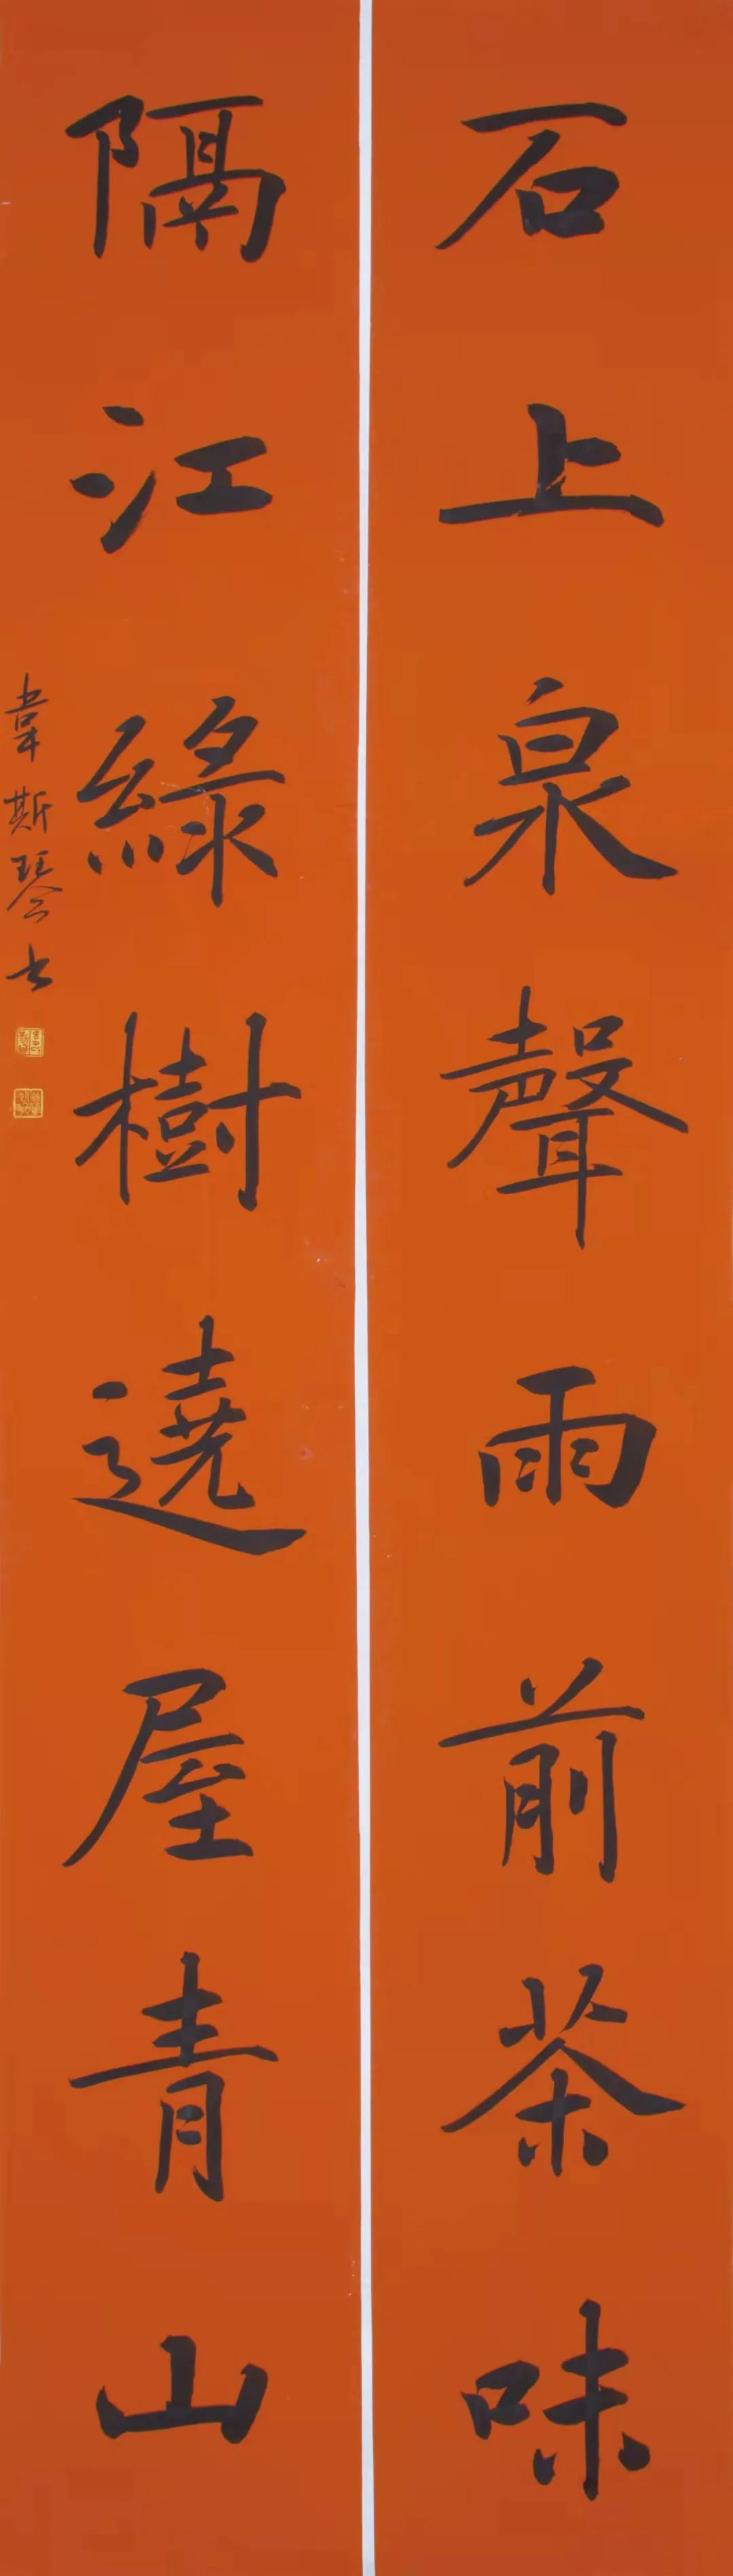 石上泉聲雨前茶味
隔江綠樹遶屋青山
韋斯琴书